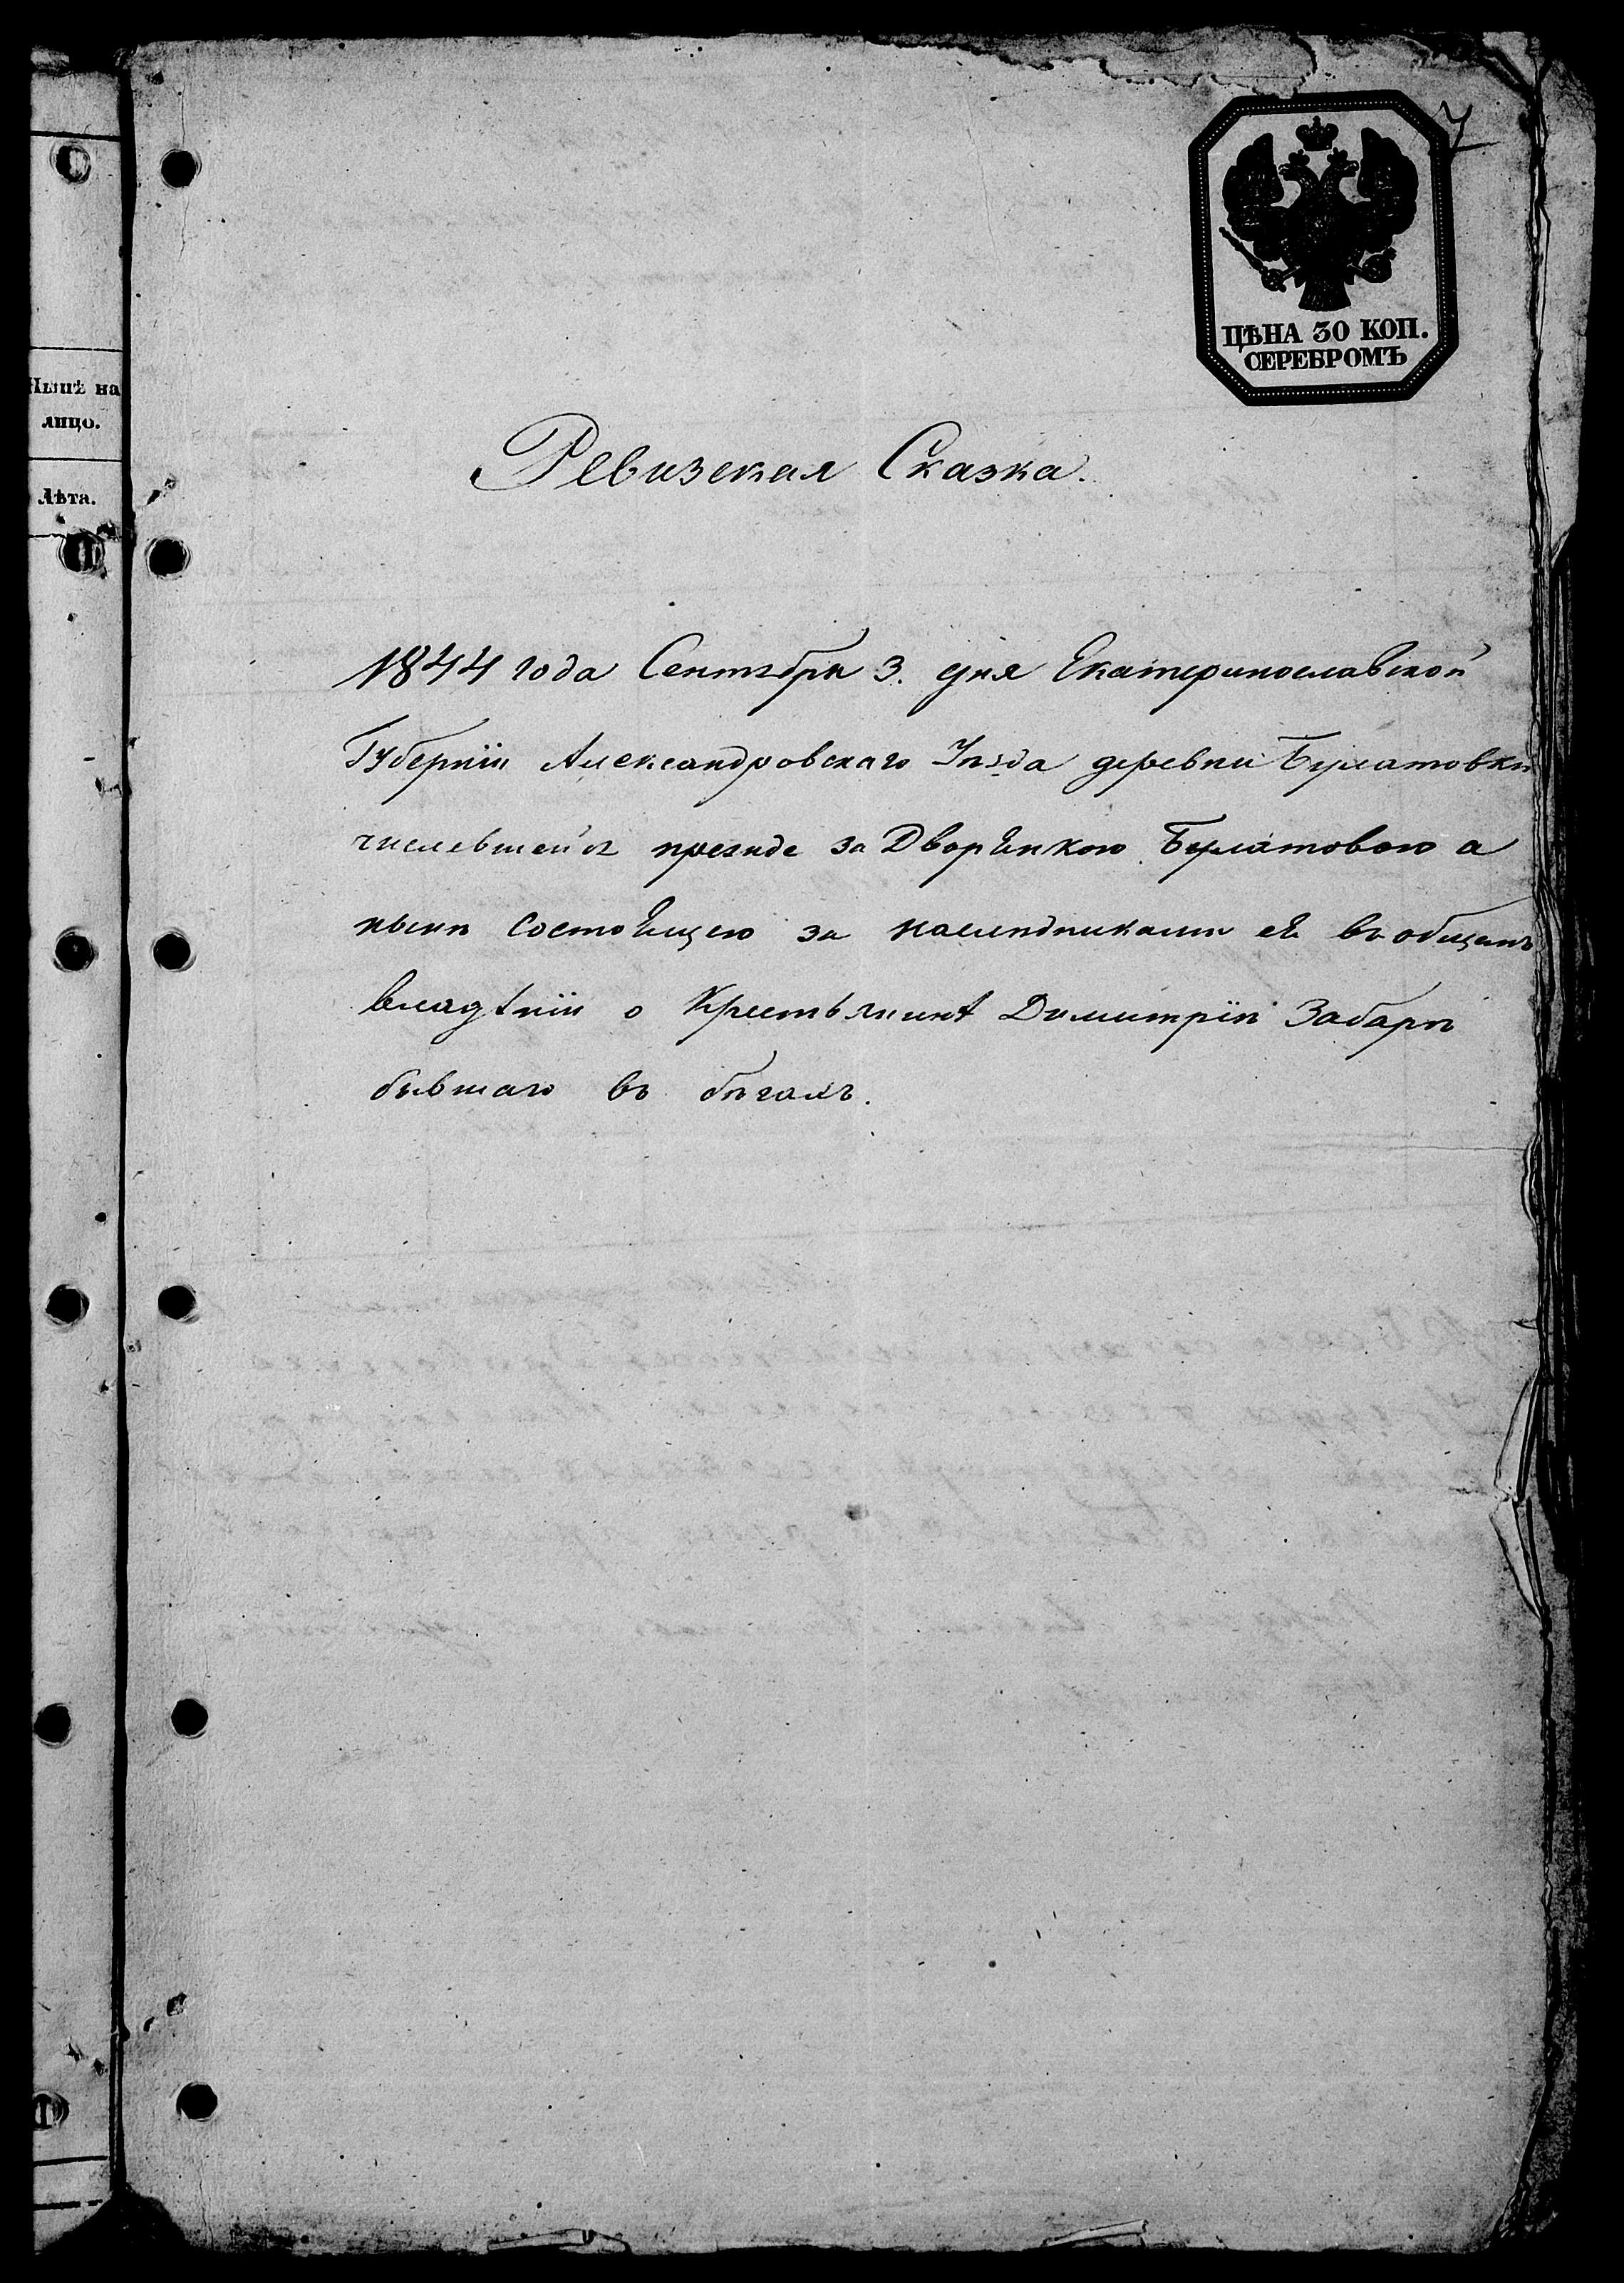 7
ЦѢНА 30 КОП.
СЕРЕБРОМЪ
Нынѣ на
лицо.
Лѣта.
Ревизская Сказка.
1844 года Сентября 3. дня Екатеринославской
Губернiи Александровскаго Уѣзда деревни Булатовки
числевшейся прежде за Дворянкою Булатовою а
нынѣ состоящею за наслѣдниками ея въ общемъ
владѣнiи о Крестьянинѣ Димитрiи Забарѣ
бывшаго въ бѣгахъ.